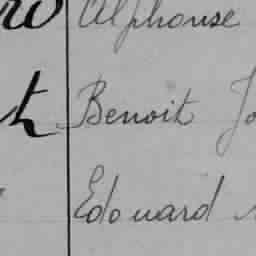 Alphonse
Benoit Jo
Edouard